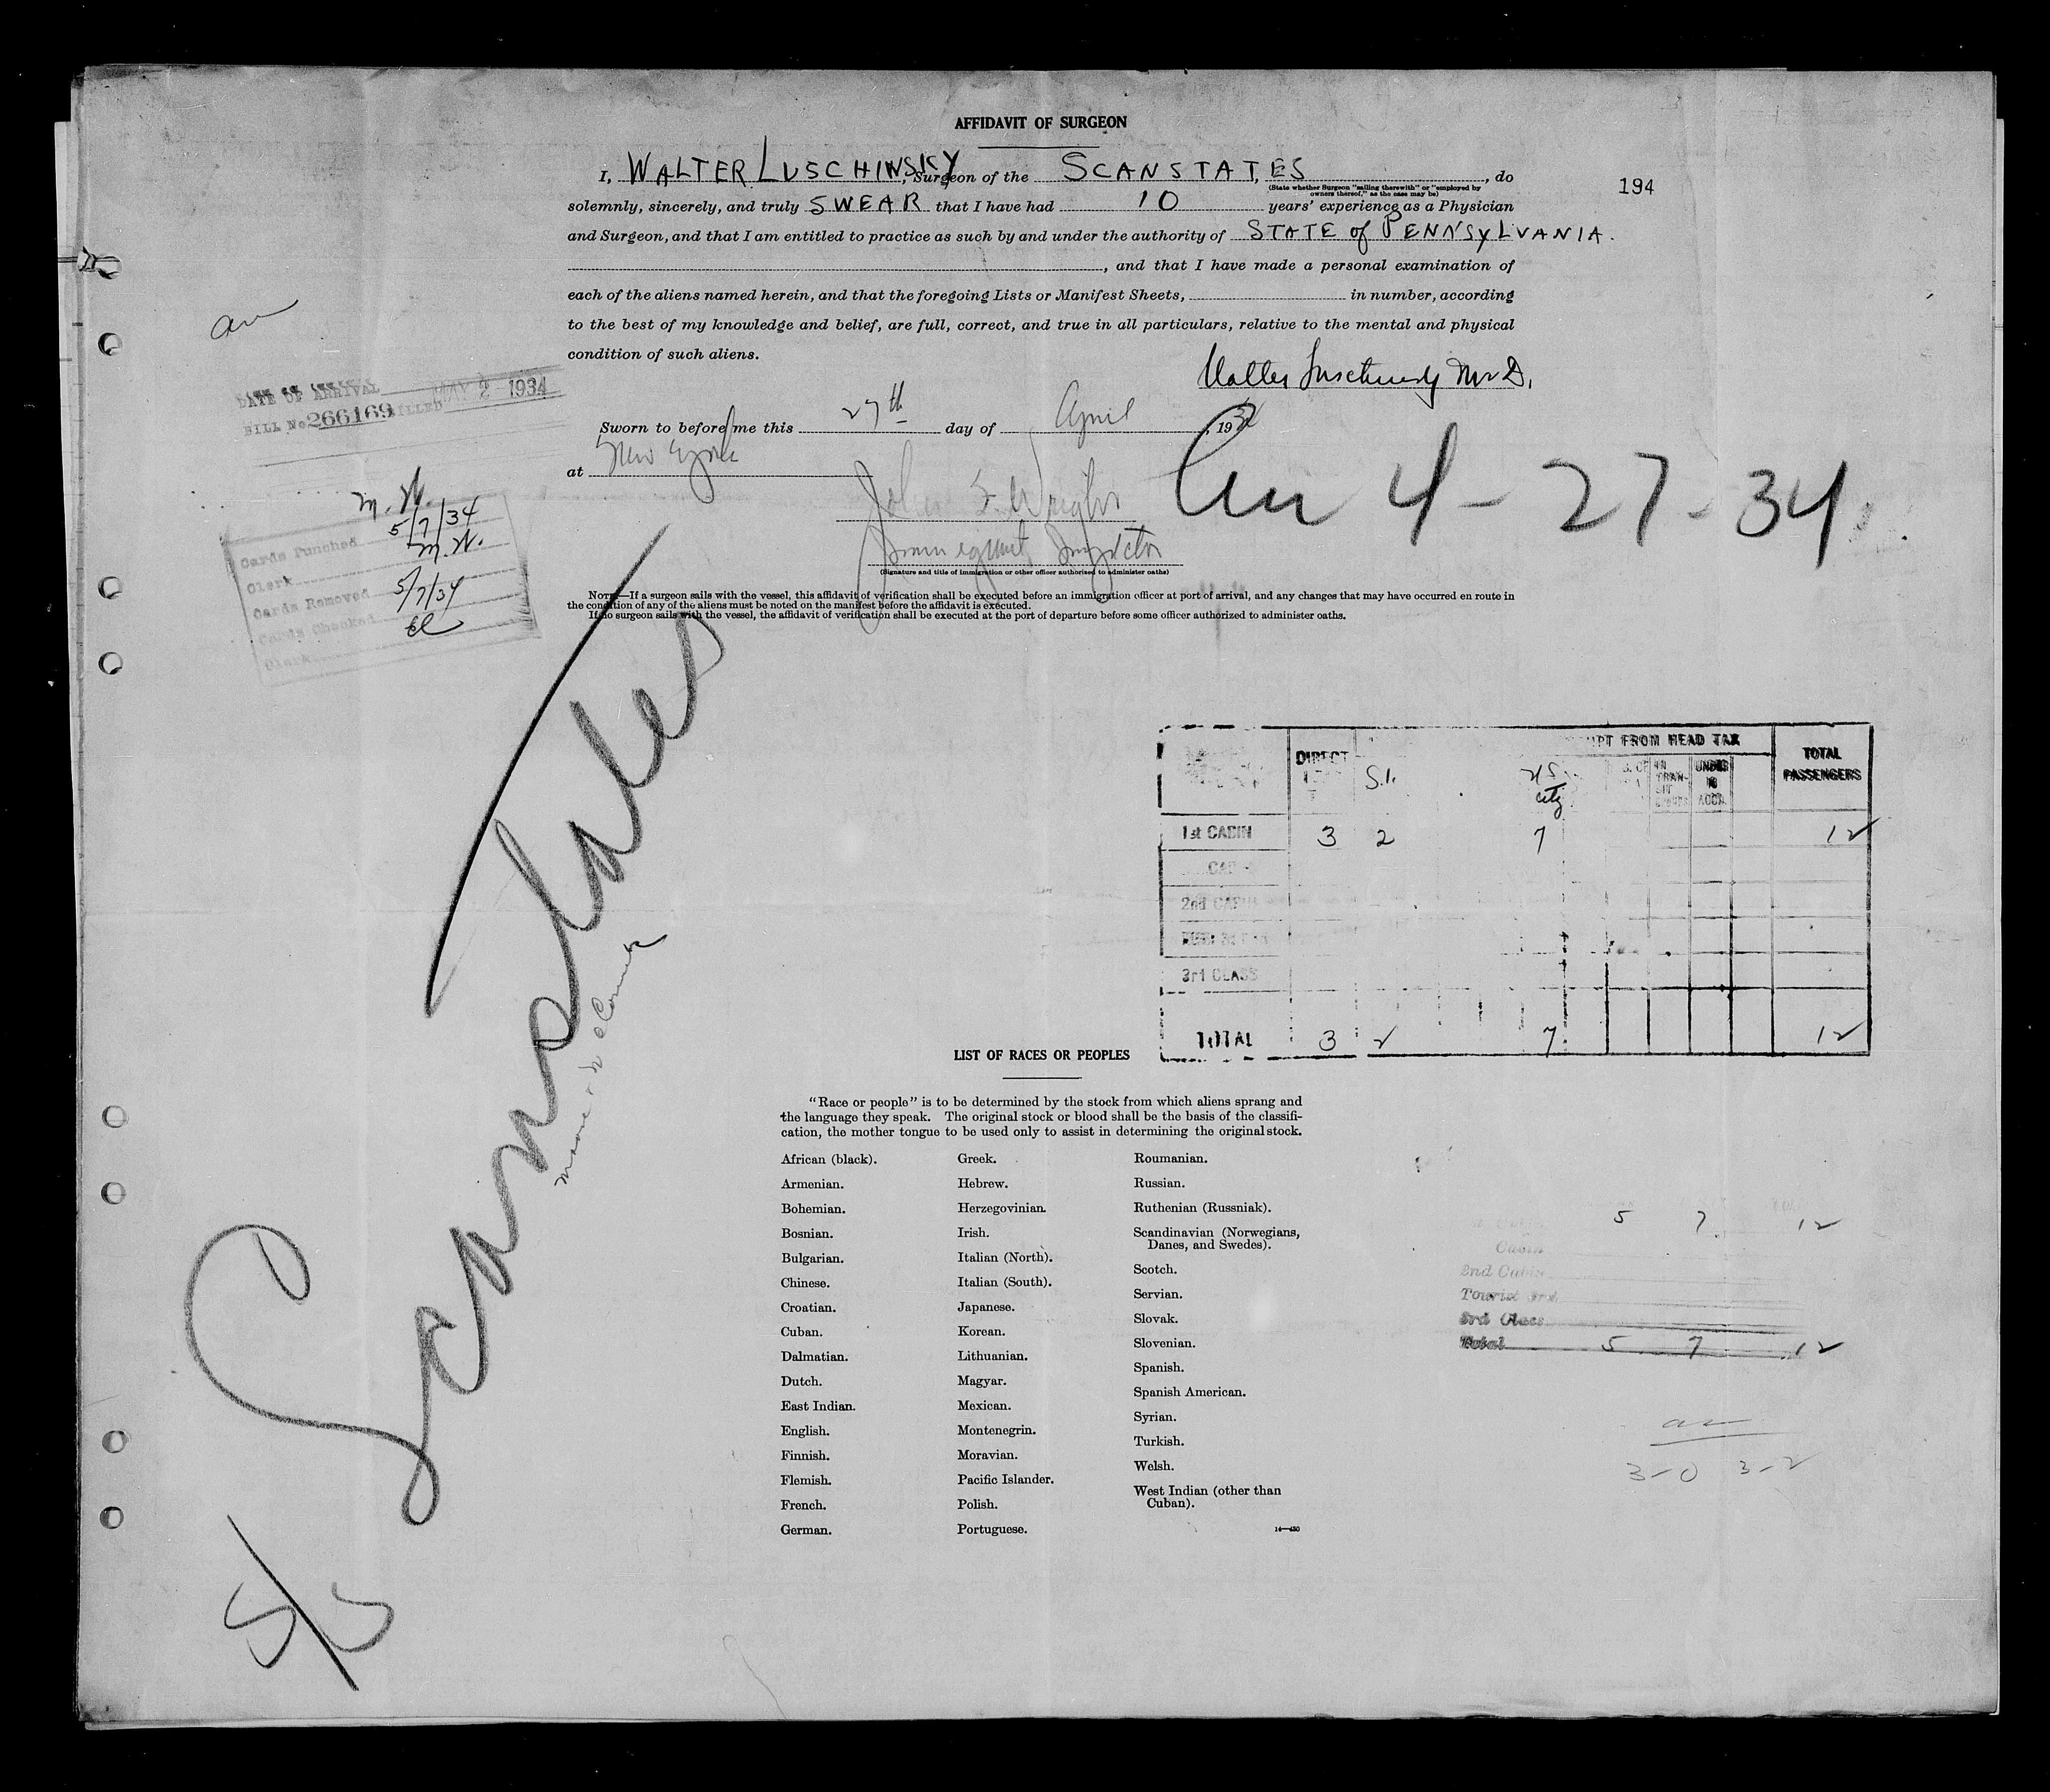 AFFIDAVIT OF SURGEON
I, WALTER LUSCHINSKY, Surgeon of the SCANSTATES, do
(State whether Surgeon "sailing therewith" or "employed by owners thereof," as the case may be)
194
solemnly, sincerely, and truly SWEAR that I have had 10 years' experience as a Physician
and Surgeon, and that I am entitled to practice as such by and under the authority of STATE of PENNSYLVANIA.
, and that I have made a personal examination of
each of the aliens named herein, and that the foregoing Lists or Manifest Sheets, in number, according
to the best of my knowledge and belief, are full, correct, and true in all particulars, relative to the mental and physical
condition of such aliens.
Walter Luschinsky M.D.
an
DATE OF ARRIVAL MAY 2 1934
BILL No 266169 FILLED
Sworn to before me this 27th day of April, 193
at New York
John S. Wright
Immigrant Inspector
(Signature and title of immigration or other officer authorized to administer oaths)
4-27-34.
M.W.
5/7/34
Cards Punched
M.W.
Clerk
Cards Removed 5/7/34
Cards Checked
Clerk
NOTE.—If a surgeon sails with the vessel, this affidavit of verification shall be executed before an immigration officer at port of arrival, and any changes that may have occurred en route in
the condition of any of the aliens must be noted on the manifest before the affidavit is executed.
If no surgeon sails with the vessel, the affidavit of verification shall be executed at the port of departure before some officer authorized to administer oaths.
Scanstates
S/S
DIRECT S.I. U.S. city FROM HEAD TAX TOTAL PASSENGERS
IN TRANSIT UNDER 16 ACCM.
1st CABIN 3 2 7 12
2nd CABIN
3rd CLASS
TOTAL 3 2 7 12
LIST OF RACES OR PEOPLES
"Race or people" is to be determined by the stock from which aliens sprang and
the language they speak. The original stock or blood shall be the basis of the classifi-
cation, the mother tongue to be used only to assist in determining the original stock.
African (black).
Armenian.
Bohemian.
Bosnian.
Bulgarian.
Chinese.
Croatian.
Cuban.
Dalmatian.
Dutch.
East Indian.
English.
Finnish.
Flemish.
French.
German.
Greek.
Hebrew.
Herzegovinian.
Irish.
Italian (North).
Italian (South).
Japanese.
Korean.
Lithuanian.
Magyar.
Mexican.
Montenegrin.
Moravian.
Pacific Islander.
Polish.
Portuguese.
Roumanian.
Russian.
Ruthenian (Russniak).
Scandinavian (Norwegians,
Danes, and Swedes).
Scotch.
Servian.
Slovak.
Slovenian.
Spanish.
Spanish American.
Syrian.
Turkish.
Welsh.
West Indian (other than
Cuban).
14—450
5 7 12
Cabin
2nd Cabin
Tourist 3rd
3rd Class
Total 5 7 12
3-0 3-2